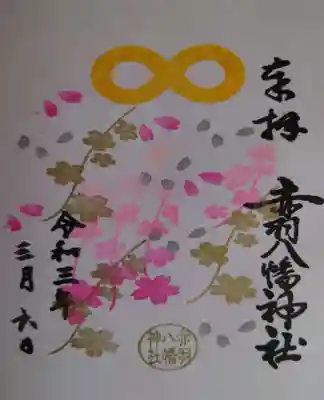 奉拝
赤羽八幡神社
令和三年
三月六日
赤羽
八幡
神社